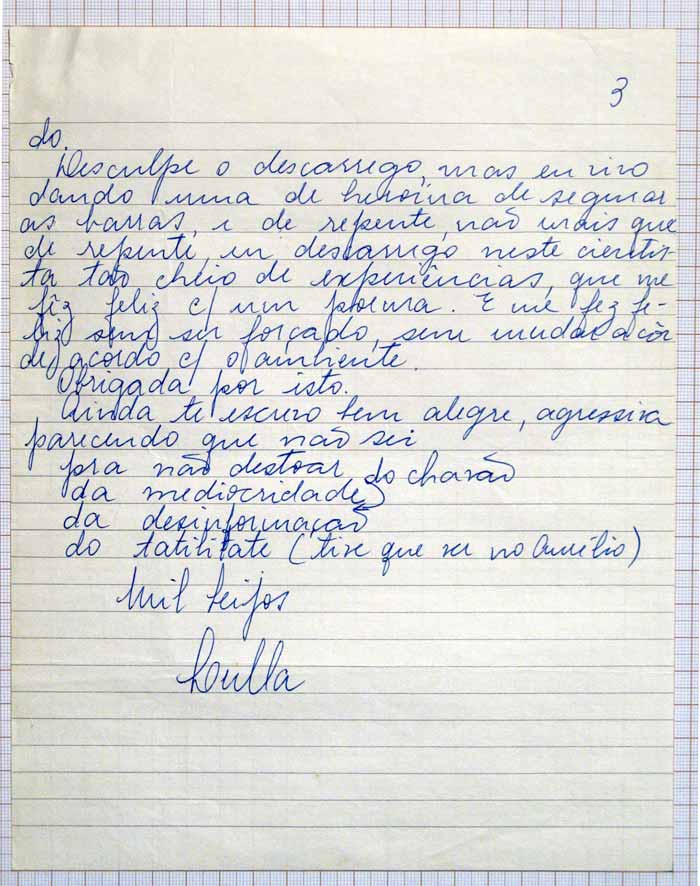 3
do.
Desculpe o descarrego, mas eu vivo
dando uma de heroína de segurar
as barras, e de repente, não mais que
de repente, eu descarrego neste cientis-
ta tão cheio de experiências, que me
fêz feliz c/ um poema. E me fez fe-
liz sem ser forçado, sem mudar a côr
de acordo c/ o ambiente.
Obrigada por isto.
Ainda te escrevo bem alegre, agressiva
parecendo que não sei
pra não destoar do chavão
da mediocridade
da desinformação
do tatilitate (tive que ver no Aurélio)
Mil beijos